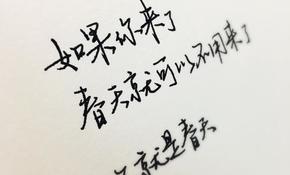 如果你来了
春天就可以不用来了
就是春天